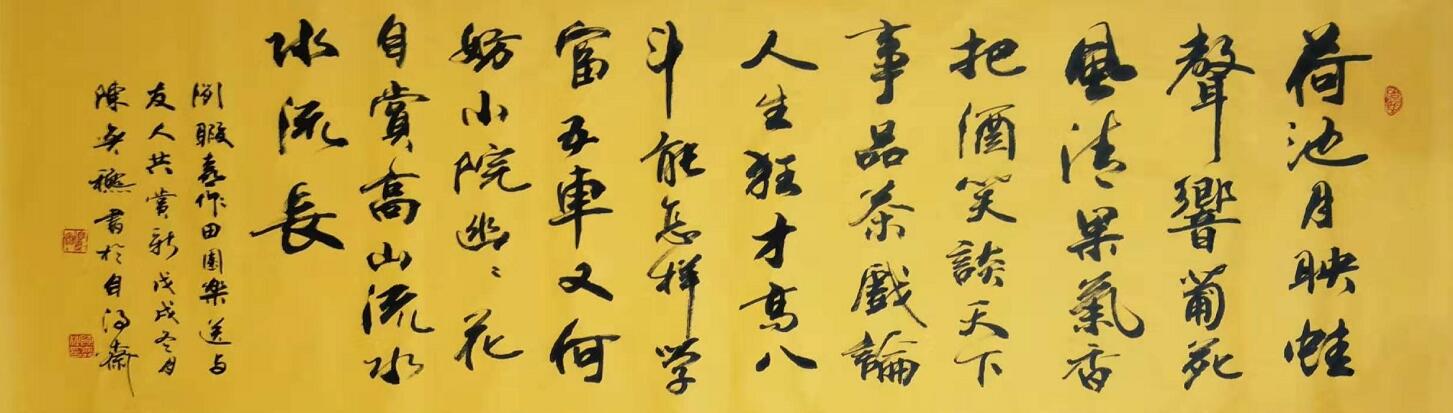 荷池月映蛙
聲響葡苑
風清果氣香
把酒笑談天下
事品茶戲論
人生狂才高八
斗能怎样学
富五車又何
妨小院幽〻花
自賞高山流水
水流長
暇喜作田園樂送与
友人共賞新戊戌冬月
陳書於自得齋